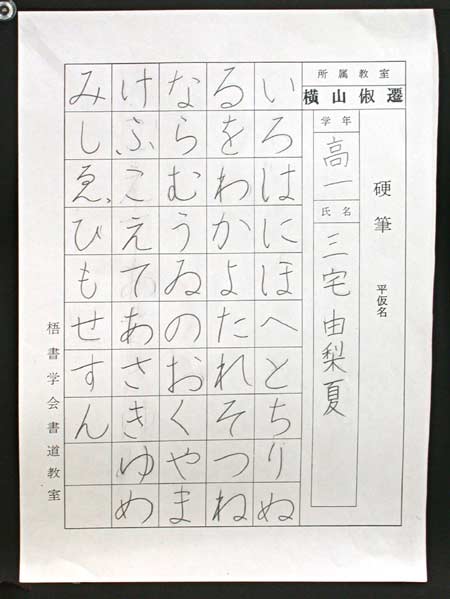 硬筆 平仮名
所属教室
横山俶遷
学年
高一
氏名
三宅由梨夏
いろはにほへとちりぬ
るをわかよたれそつね
ならむうゐのおくやま
けふこえてあさきゆめ
みしゑひもせすん
梧書学会書道教室